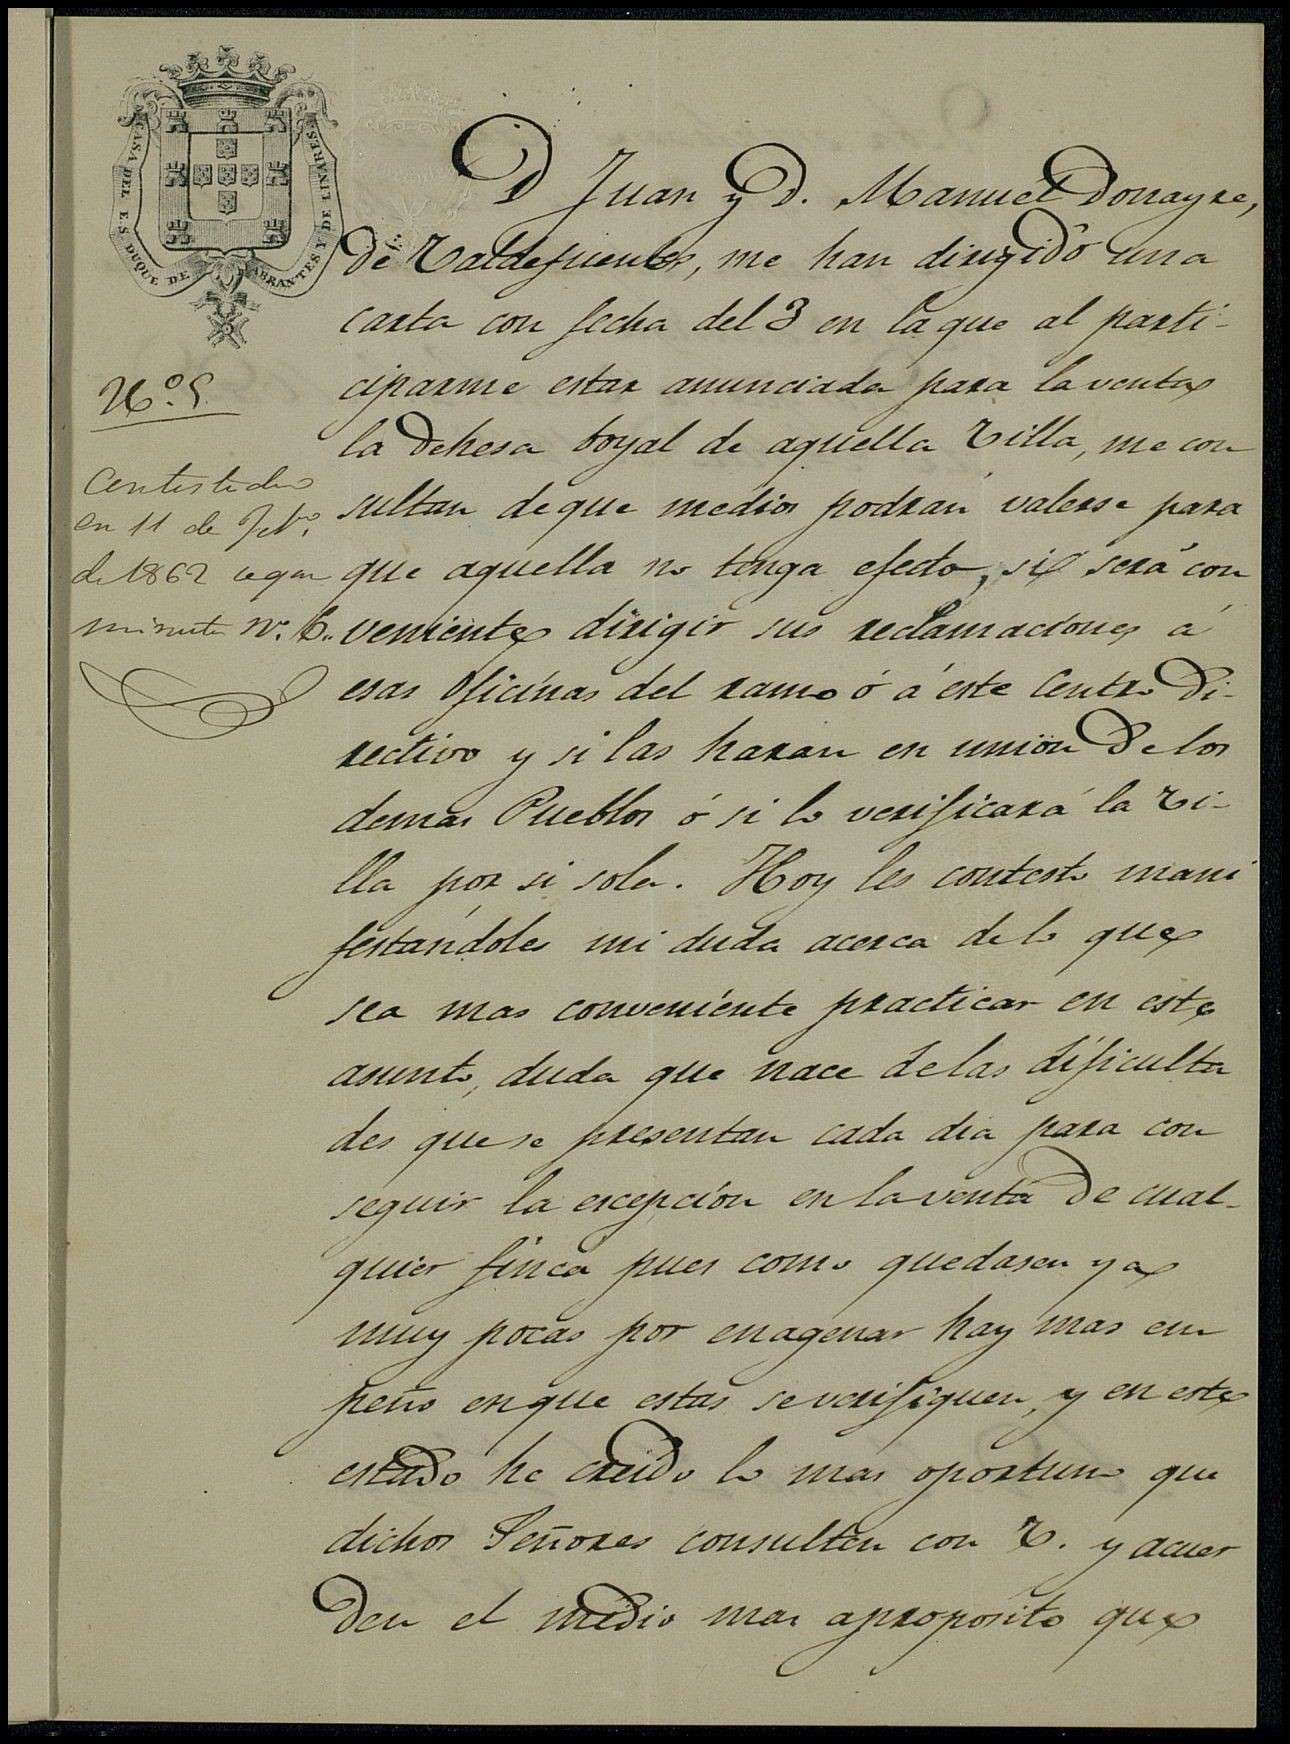 CASA DEL E.S. DUQUE DE ABRANTES Y DE LINARES.
N.º 5.
Contestada
en 11 de Feb.º
de 1862 segun
minuta N.º 6.
D Juan y D. Manuel Donayre,
de Valdefuentes, me han dirigido una
carta con fecha del 3 en la que al parti-
ciparme estar anunciada para la venta
la Dehesa boyal de aquella Villa, me con
sultan de que medios podrán valerse para
que aquella no tenga efecto, si será con
veniente dirigir sus reclamaciones á
esas Oficinas del ramo ó á este Centro Di-
rectivo y si las haran en unión de los
demas Pueblos ó si lo verificará la Vi-
lla por si sola. Hoy les contesto mani
festándoles mi duda acerca de lo que
sea mas conveniente practicar en este
asunto, duda que nace de las dificulta
des que se presentan cada dia para con
seguir la escepción en la venta de cual-
quier finca pues como quedasen ya
muy pocas por enagenar hay mas em
peño en que estas se verifiquen, y en este
estado he creido lo mas oportuno que
dichos Señores consulten con V. y acuer
den el medio mas aproposito que